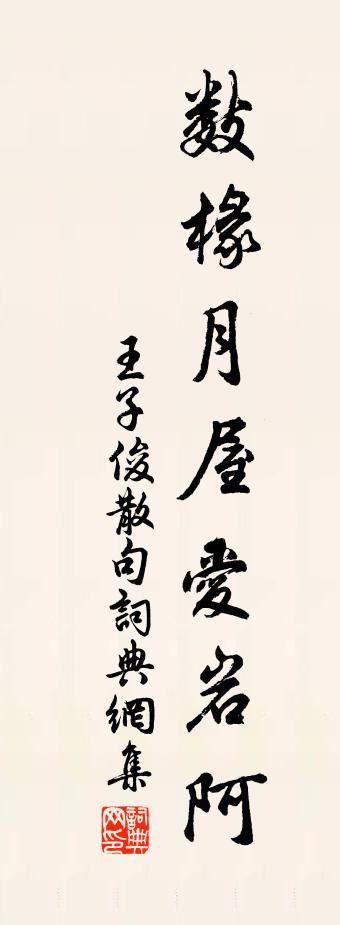 数椽月屋愛岩阿
王子俊散句詞典網集
詞典
网印